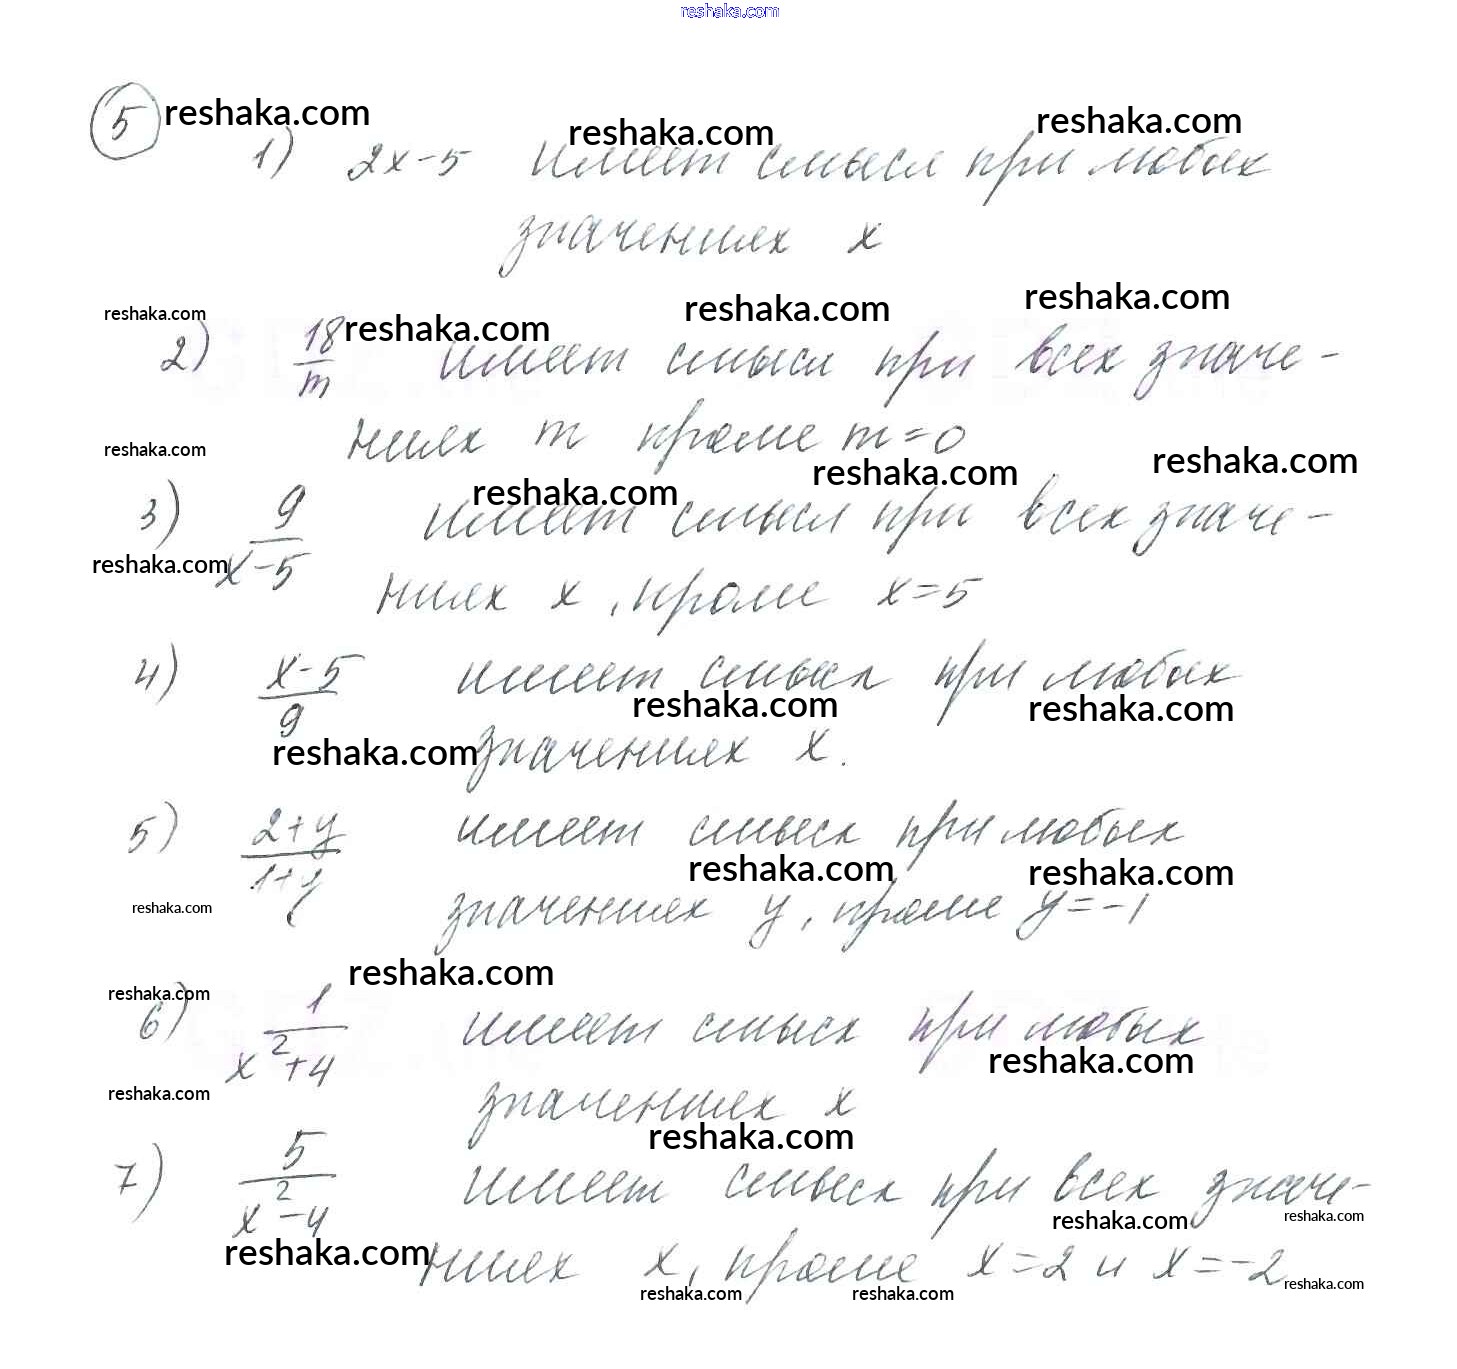 reshaka.com
5 reshaka.com reshaka.com reshaka.com
1) 2x-5 имеет смысл при любых
значениях x
reshaka.com reshaka.com reshaka.com reshaka.com
2) 18/m имеет смысл при всех значе-
ниях m кроме m=0
reshaka.com reshaka.com reshaka.com reshaka.com
3) 9/x-5 имеет смысл при всех значе-
reshaka.com
ниях x, кроме x=5
4) x-5/9 имеет смысл при любых
reshaka.com reshaka.com
reshaka.com значениях x.
5) 2+y/1+y имеет смысл при любых
reshaka.com reshaka.com
reshaka.com значениях y, кроме y=-1
reshaka.com reshaka.com
6) 1/x²+4 имеет смысл при любых
reshaka.com reshaka.com
значениях x
reshaka.com
7) 5/x²-4 имеет смысл при всех значе-
reshaka.com reshaka.com
reshaka.com ниях x, кроме x=2 и x=-2
reshaka.com reshaka.com reshaka.com